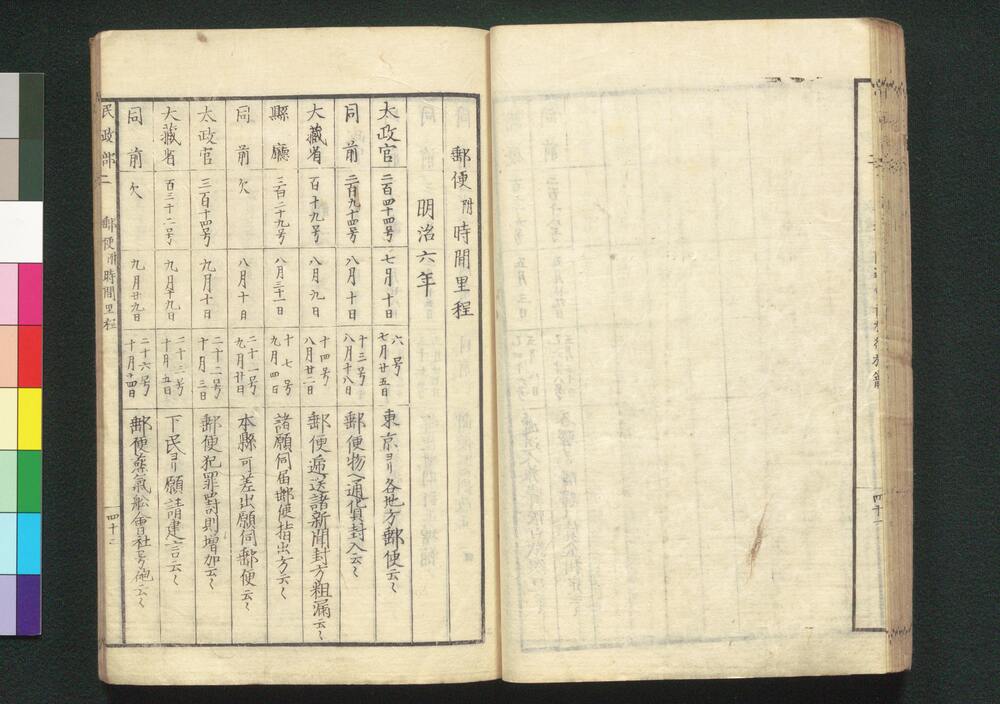 郵便附時間里程
明治六年
太政官 二百四十四号 七月十日 六号 七月廿五日 東京ヨリ各地方郵便云〻
同前 二百九十四号 八月十日 十三号 八月十八日 郵便物ヘ通貨封入云〻
大蔵省 百十九号 八月九日 十四号 八月廿二日 郵便逓送諸新聞封方粗漏云〻
縣廳 二百二十九号 八月三十一日 十七号 九月四日 諸願伺届郵便指出方云〻
同前 欠 八月十日 二十一号 九月廿日 本縣可差出願伺郵便云〻
太政官 三百十四号 九月十日 二十二号 十月三日 郵便犯罪罰則増加云〻
大蔵省 百三十二号 九月十九日 二十三号 十月五日 下民ヨリ願請建言云〻
同前 欠 九月廿九日 二十六号 十月十四日 郵便蒸氣舩會社号砲云〻
民政部二 郵便附時間里程 四十二
四十一